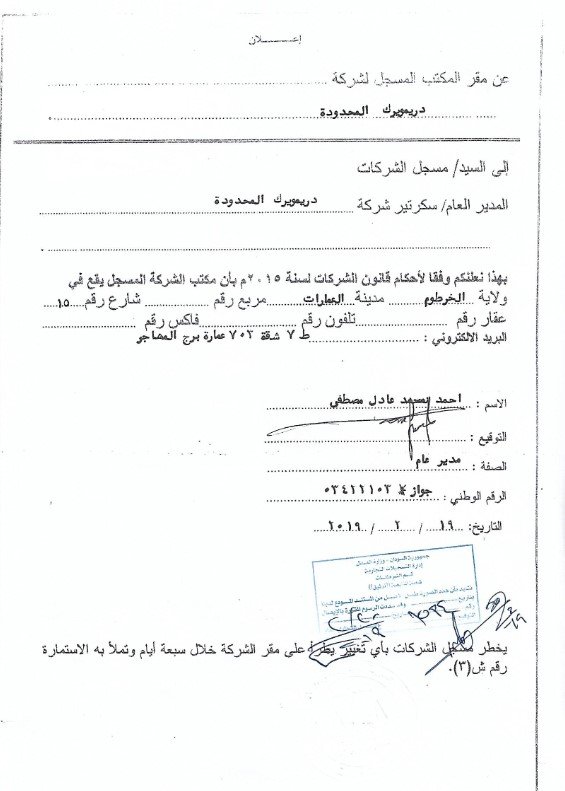 إعـــــلان
عن مقر المكتب المسجل لشركة
دريمويرك المحدودة
إلى السيد/ مسجل الشركات
المدير العام/ سكرتير شركة دريمويرك المحدودة
بهذا نعلنكم وفقا لأحكام قانون الشركات لسنة ٢٠١٥م بأن مكتب الشركة المسجل يقع في
ولاية الخرطوم مدينة العمارات مربع رقم شارع رقم ١٥
عقار رقم تلفون رقم فاكس رقم
البريد الالكتروني : ط ٧ شقة ٧٠٢ عمارة برج المهاجر
الاسم : احمد محمد عادل مصطفي
التوقيع :
الصفة : مدير عام
الرقم الوطني : جواز
التاريخ: ١٩ / ٢ / ٢٠١٩
جمهورية السودان - وزارة العدل
إدارة التسجيلات التجارية
يخطر مسجل الشركات بأي تغيير يطرأ على مقر الشركة خلال سبعة أيام وتملأ به الاستمارة
رقم ش(٣).